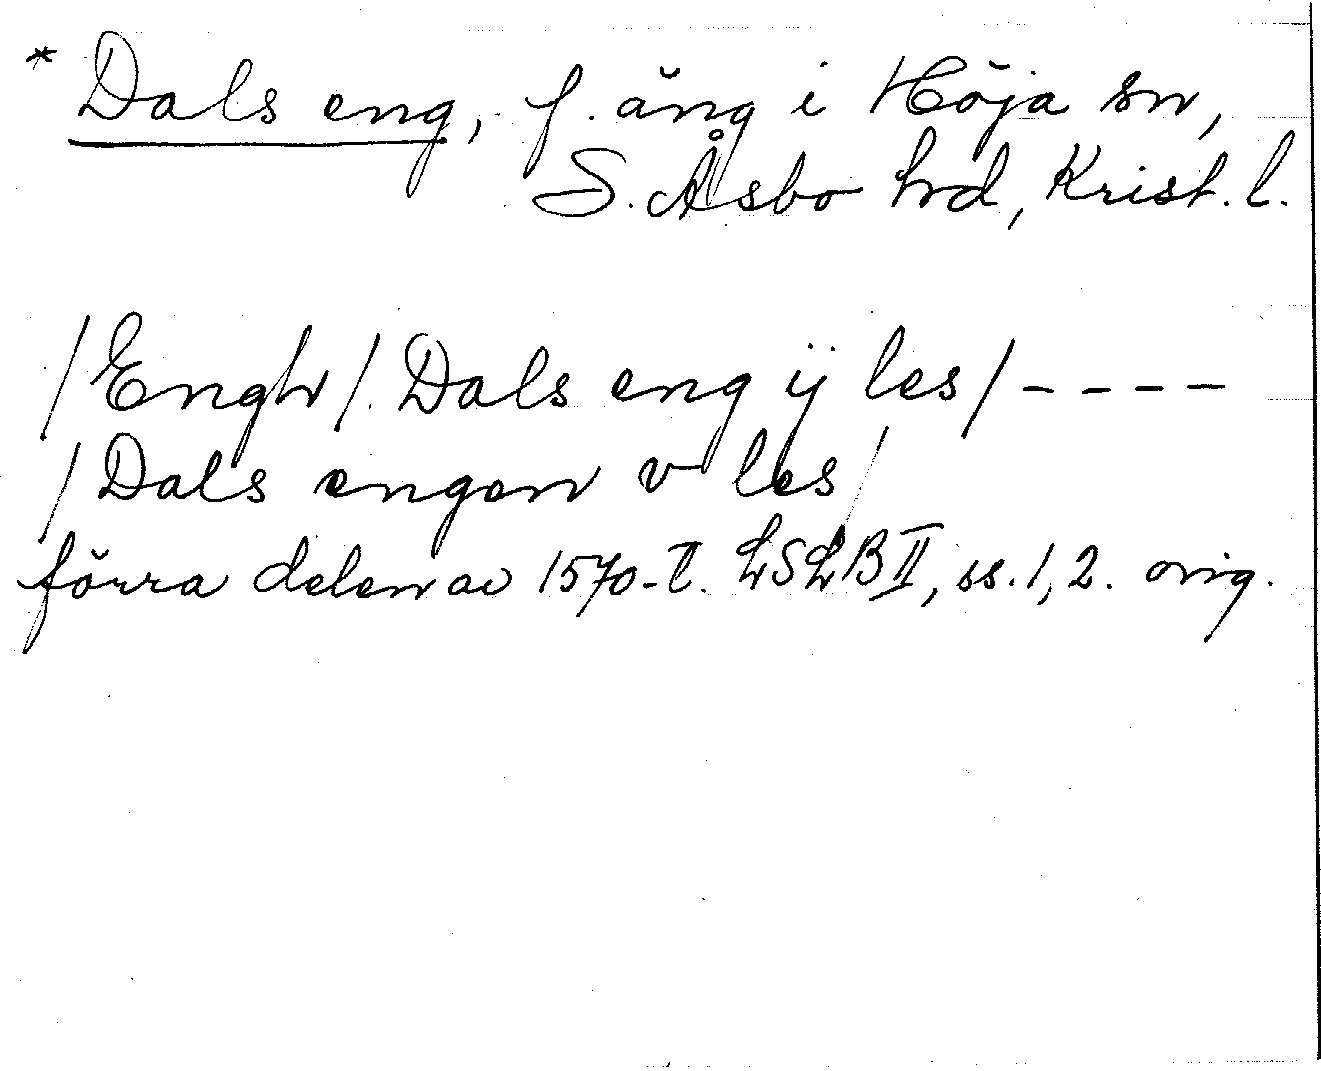 * Dals eng, f. äng i Höja sn,
S. Åsbo hd, Krist. l.
/Engh/. Dals eng ij les/ - - - -
/Dals engen v les/
förra delen av 1570-t. LSLB II, ss. 1, 2. orig.